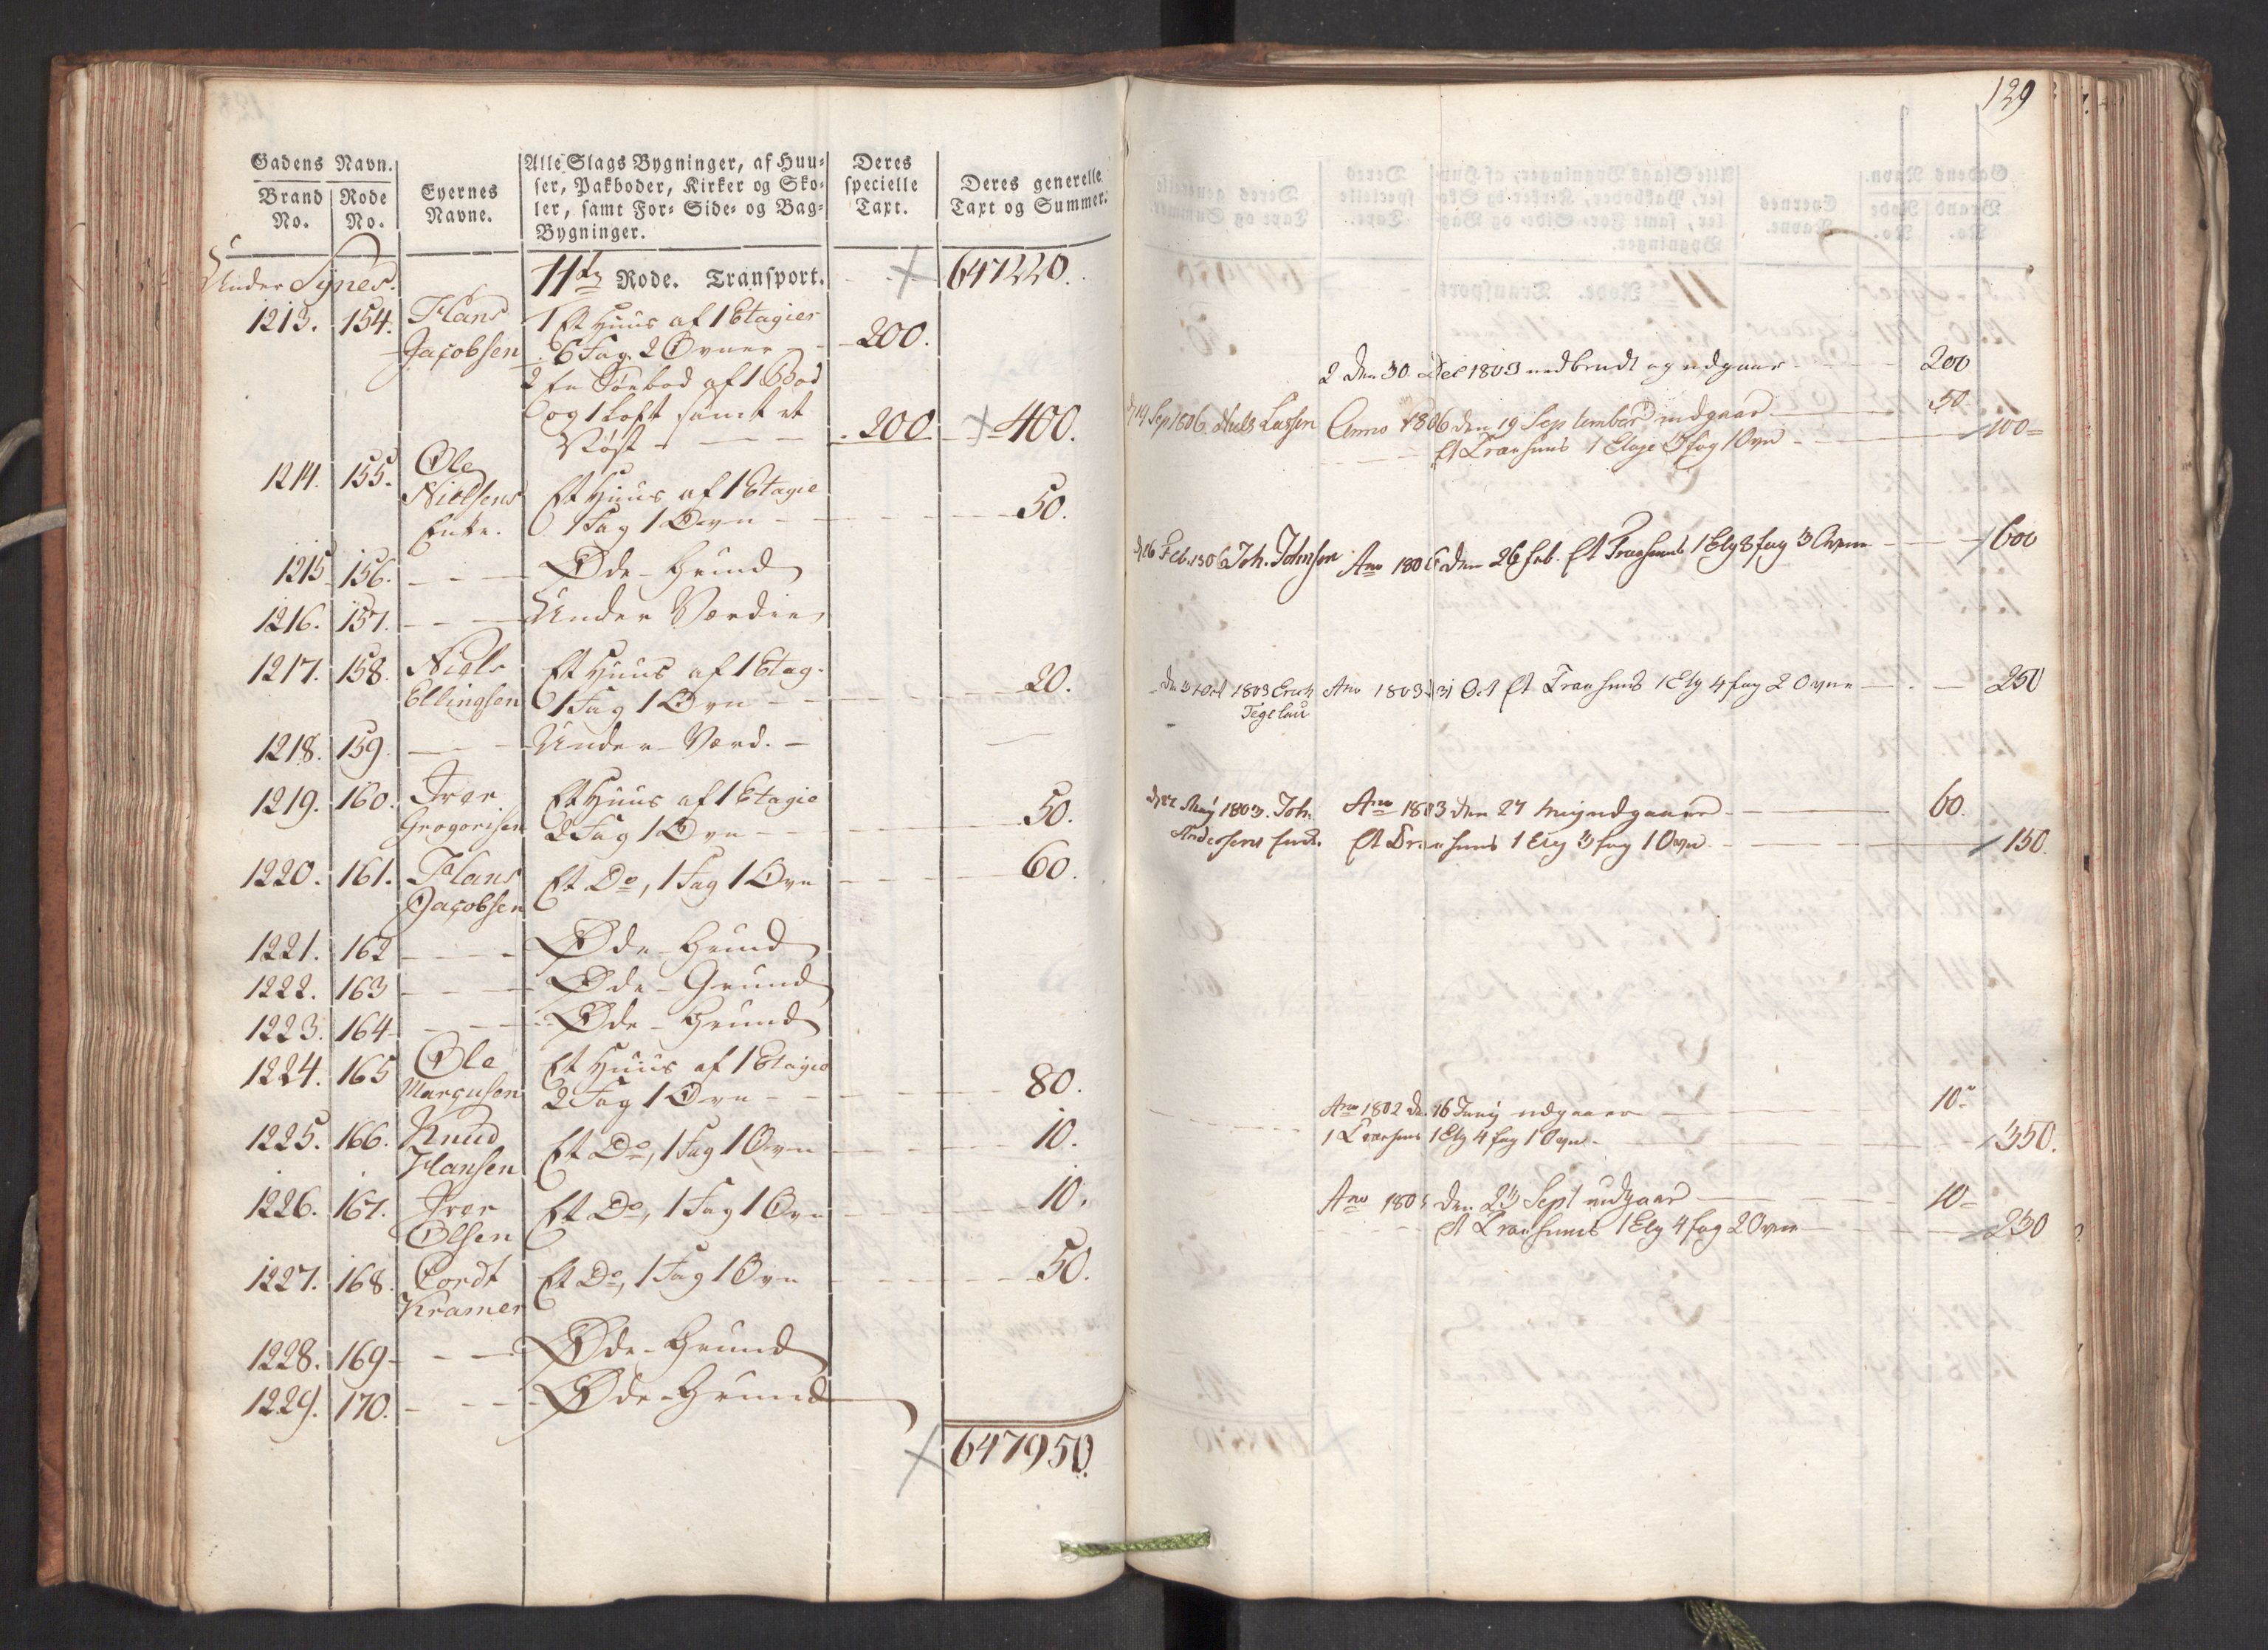 Gadens Navn.
Brand No.
Rode No.
Eyernes Navne.
Alle Slags Bygninger, af Huu-
ser, Pakboder, Kirker og Sko-
ler, samt For- Side- og Bag-
Bygninger.
Deres specielle Taxt.
Deres generelle Taxt og Summer.
Under Synes.
11te Rode. Transport. 647220.
1213. 154. Hans Jacobsen 1 Et Huus af 1 Etagier
6 Fag 2 Ovner 200.
2 En Søebod af 1 Bod
og 1 Loft samt et
Nøst 200 400.
1214. 155. Ole Nielsens Enke. Et Huus af 1 Etagie
1 Fag 1 Ovn 50.
1215 156. Øde-Grund
1216. 157. Under Værdie
1217. 158. Niels Ellingsen Et Huus af 1 Etag.
1 Fag 1 Ovn 20.
1218. 159. Under Værd.
1219. 160. Iver Gregorisen Et Huus af 1 Etagie
2 Fag 1 Ovn 50.
1220. 161. Hans Jacobsen Et Do, 1 Fag 1 Ovn 60.
1221. 162 Øde-Grund
1222. 163 Øde-Grund
1223. 164 Øde-Grund
1224. 165 Ole Marcusen Et Huus af 1 Etagie
2 Fag 1 Ovn 80.
1225. 166. Knud Hansen Et Do, 1 Fag 1 Ovn 10.
1226. 167. Iver Olsen Et Do, 1 Fag 1 Ovn 10.
1227. 168. Cordt Kramer Et Do, 1 Fag 1 Ovn 50.
1228. 169 Øde-Grund
1229. 170. Øde-Grund
647950.
129
2 den 30 Dec 1803 nedbrudt og udgaar 200
d 19 Sep 1806 Niels Lassen Anno 1806 den 19 September udgaar 50
Et Træhuus 1 Etage 3 fag 1 Ovn 100
Feb. 1806 Joh. Johnsen Ano 1806 den 26 feb. Et Træehuus 1 Etg 8 fag 3 Ovne 600
den 31 Oct 1803 Erich Ano 1803 d 31 Oct Et Træehuus 1 Etg 4 fag 2 Ovne 250
Tegelau
d 27 May 1803. Joh. Ano 1803 den 27 May udgaar 60.
Andersens Enke. Et Træhuus 1 Etg 3 fag 1 Ovn 150.
Ano 1802 den 16 Juny udgaaer 10
1 Træehuus 1 Etg 4 fag 1 Ovn 350.
Ano 1805 den 23 Sept udgaar 10
Et Træehuus 1 Etg 4 fag 2 Ovne 250